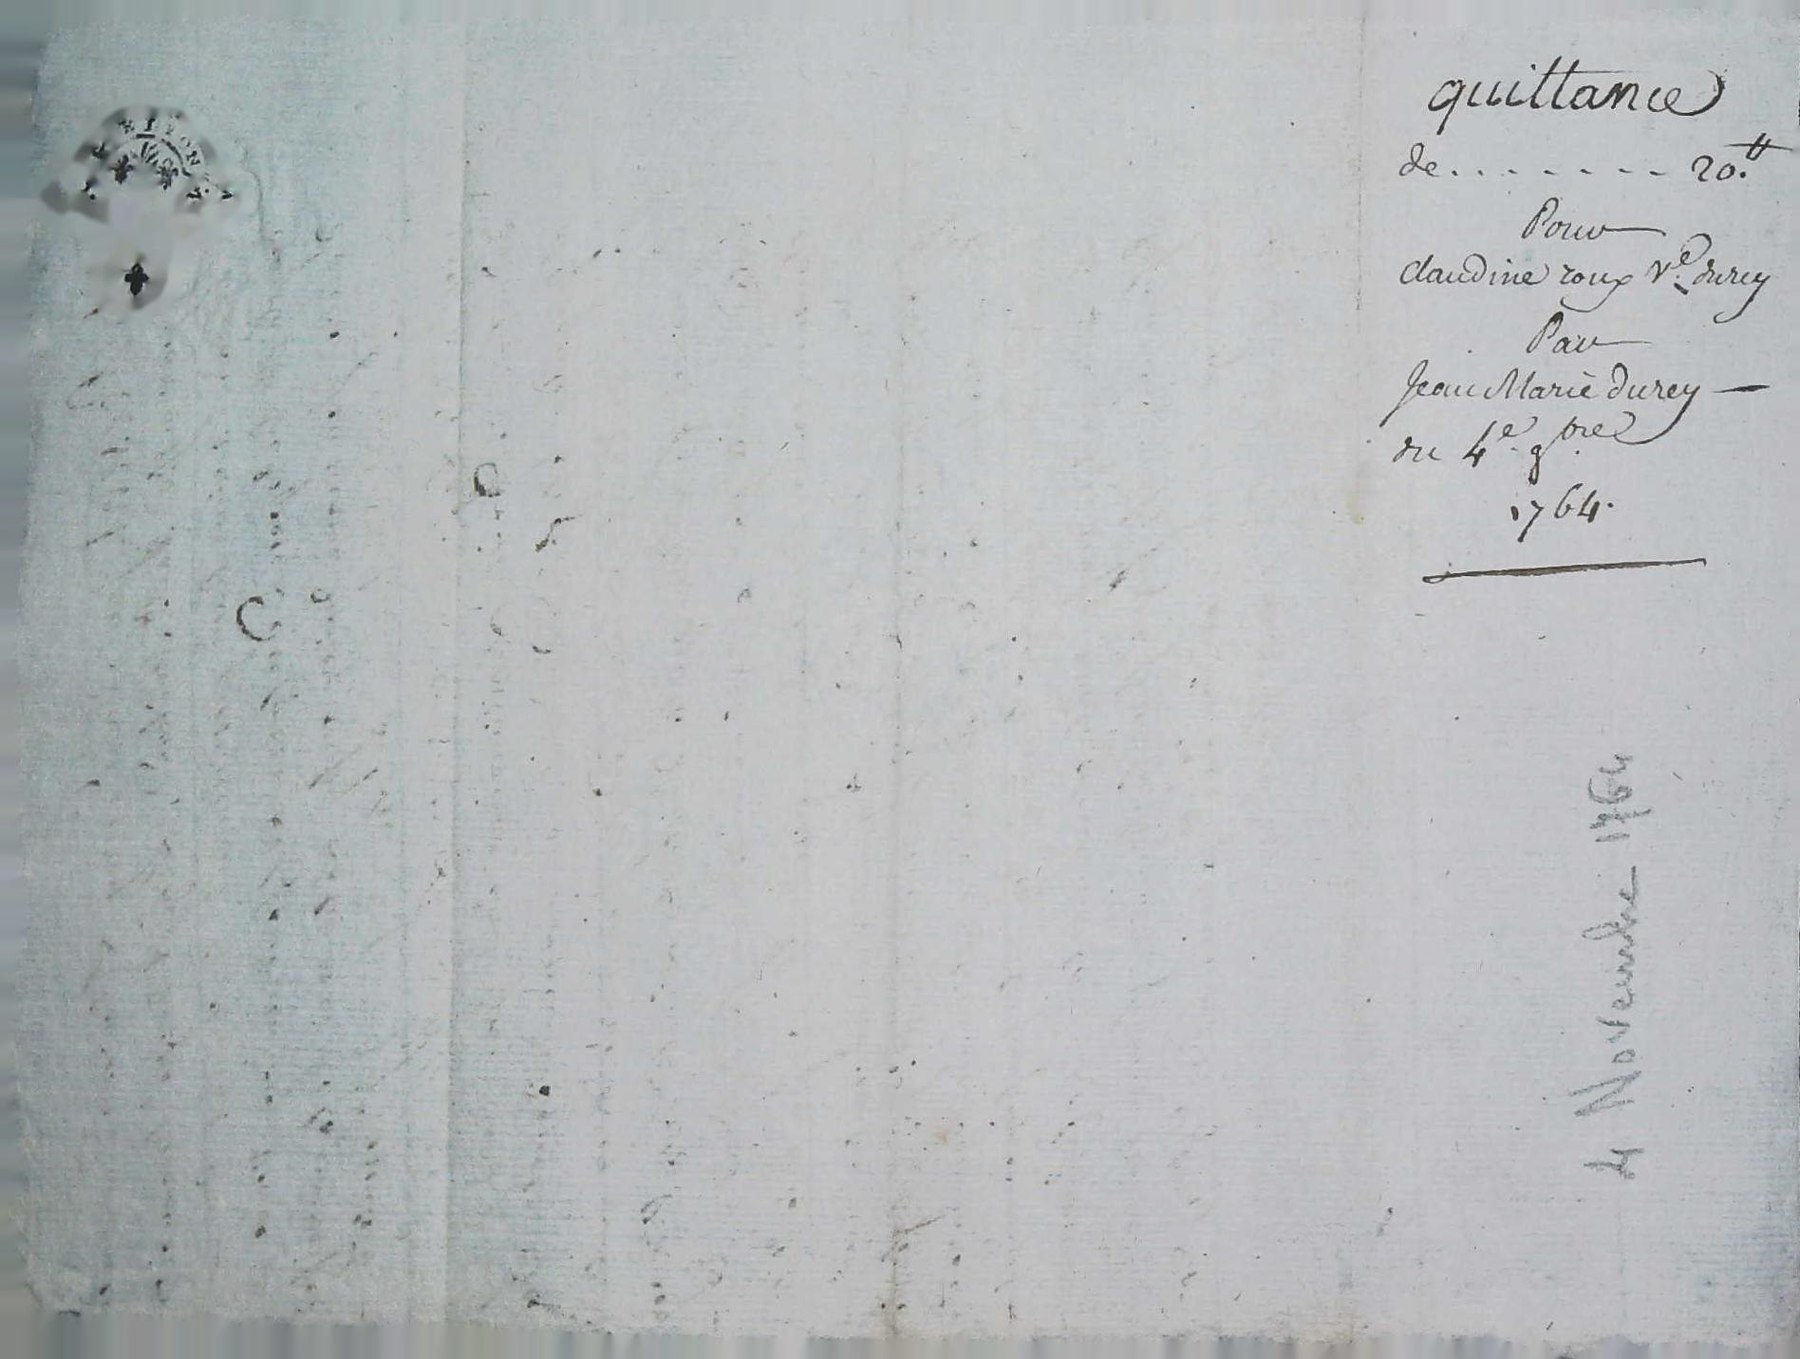 quittance
de........ 20.tt
Pour
Claudine roux Ve. durey
Par
Jean Marie durey —
du 4e. 9bre
1764.
4 Novembre 1764